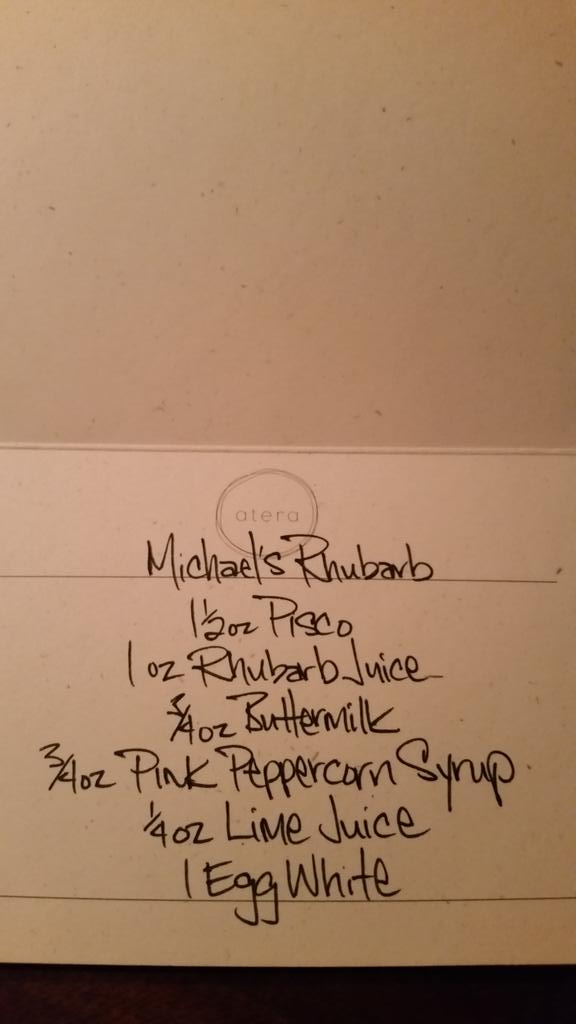 atera
Michael's Rhubarb
1 1/2 oz Pisco
1 oz Rhubarb Juice
3/4 oz Buttermilk
3/4 oz Pink Peppercorn Syrup
1/4 oz Lime Juice
1 Egg White